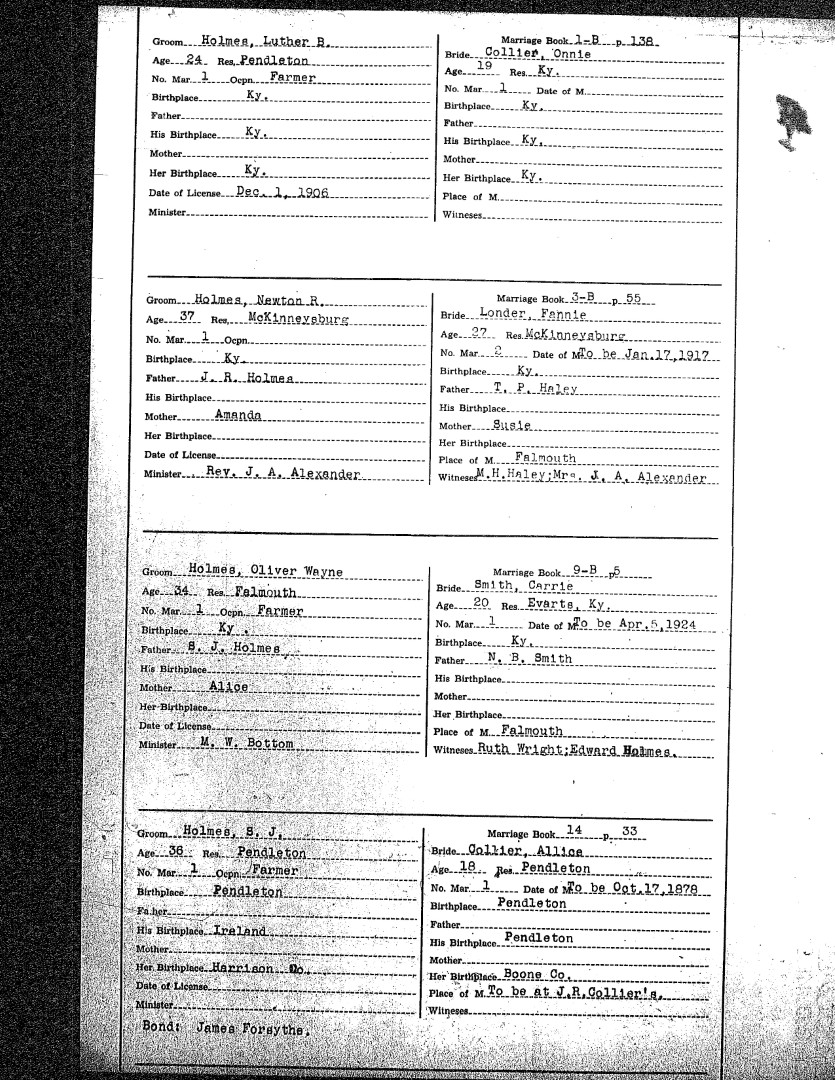 Groom Holmes, Luther B.
Age 24 Res. Pendleton
No. Mar. 1 Ocpn. Farmer
Birthplace Ky.
Father
His Birthplace Ky.
Mother
Her Birthplace Ky.
Date of License Dec. 1, 1906
Minister
Marriage Book 1-B p 138
Bride Collier, Onnie
Age 19 Res. Ky.
No. Mar. 1 Date of M.
Birthplace Ky.
Father
His Birthplace Ky.
Mother
Her Birthplace Ky.
Place of M.
Witnesses
Groom Holmes, Newton R.
Age 37 Res. McKinneysburg
No. Mar. 1 Ocpn.
Birthplace Ky.
Father J. R. Holmes
His Birthplace
Mother Amanda
Her Birthplace
Date of License
Minister Rev. J. A. Alexander
Marriage Book 3-B p 55
Bride Londer, Fannie
Age 27 Res. McKinneysburg
No. Mar. 2 Date of M. To be Jan.17,1917
Birthplace Ky.
Father T. P. Haley
His Birthplace
Mother Susie
Her Birthplace
Place of M. Falmouth
Witnesses M.H.Haley;Mrs. J. A. Alexander
Groom Holmes, Oliver Wayne
Age 34 Res. Falmouth
No. Mar. 1 Ocpn. Farmer
Birthplace Ky.
Father S. J. Holmes
His Birthplace
Mother Alice
Her Birthplace
Date of License
Minister M. W. Bottom
Marriage Book 9-B p5
Bride Smith, Carrie
Age 20 Res. Evarts, Ky.
No. Mar. 1 Date of M. To be Apr.5,1924
Birthplace Ky.
Father N. B. Smith
His Birthplace
Mother
Her Birthplace
Place of M. Falmouth
Witnesses Ruth Wright;Edward Holmes.
Groom Holmes, S. J.
Age 36 Res. Pendleton
No. Mar. 1 Ocpn. Farmer
Birthplace Pendleton
Father
His Birthplace Ireland
Mother
Her Birthplace Harrison Co.
Date of License
Minister
Bond: James Forsythe.
Marriage Book 14 p 33
Bride Collier, Allice
Age 18 Res. Pendleton
No. Mar. 1 Date of M. To be Oct.17,1878
Birthplace Pendleton
Father
His Birthplace Pendleton
Mother
Her Birthplace Boone Co.
Place of M. To be at J.R.Collier's.
Witnesses